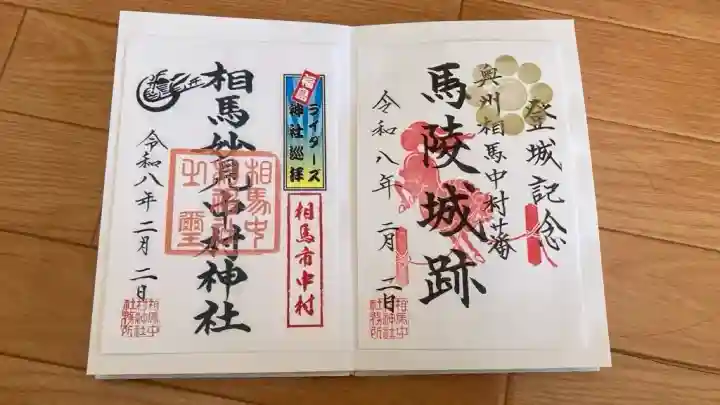 登城記念
奥州相馬中村藩
馬陵城跡
令和八年二月二日
相馬中
村神社
社務所
福島
ライダーズ
神社巡拝
相馬市中村
相馬妙見中村神社
相馬中
令和八年二月二日
相馬中
村神社
社務所